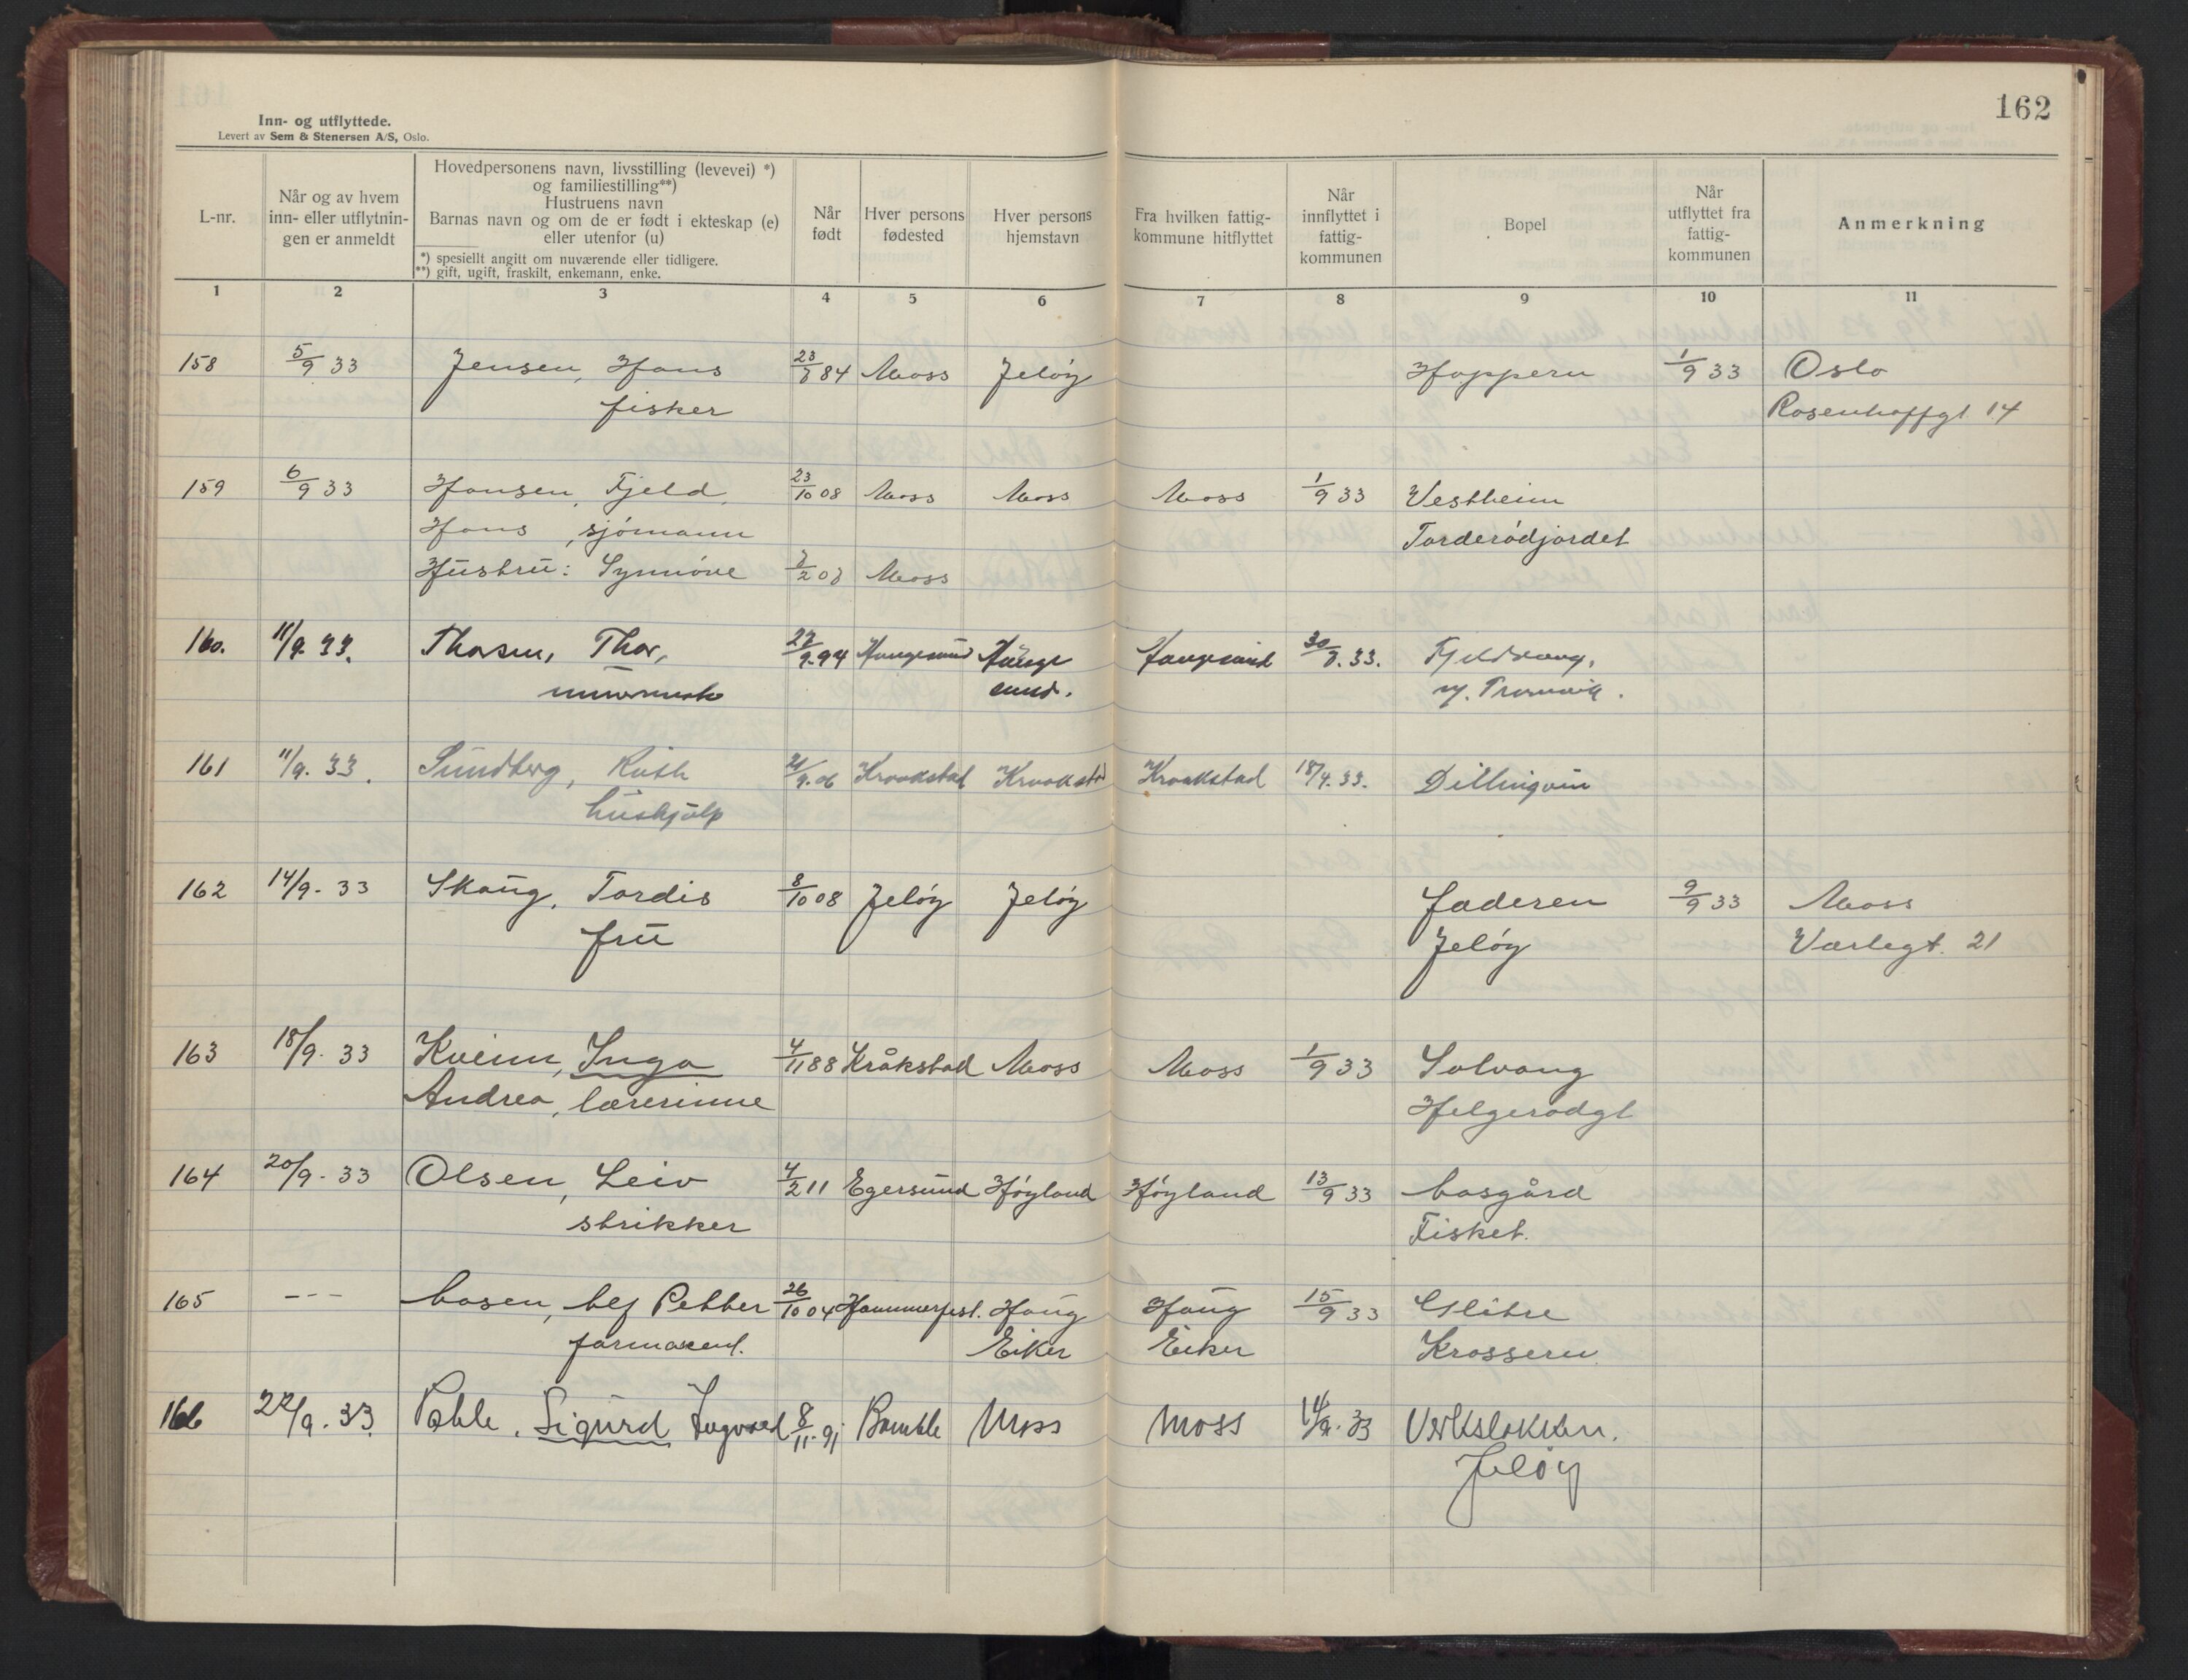 162
Inn- og utflyttede.
Levert av Sem & Stenersen A/S, Oslo.
L-nr.
Når og av hvem inn- eller utflytnin-gen er anmeldt
Hovedpersonens navn, livsstilling (levevei) *)
og familiestilling**)
Hustruens navn
Barnas navn og om de er født i ekteskap (e)
eller utenfor (u)
*) spesiellt angitt om nuværende eller tidligere.
**) gift, ugift, fraskilt, enkemann, enke.
Når født
Hver persons fødested
Hver persons hjemstavn
Fra hvilken fattig-kommune hitflyttet
Når innflyttet i fattig-kommunen
Bopel
Når utflyttet fra fattig-kommunen
Anmerkning
1 2 3 4 5 6 7 8 9 10 11
158 5/9 33 Jensen, Hans 23/8 84 Moss Jeløy Hoppern 1/9 33 Oslo
fisker Rosenhoffgt 14
159 6/9 33 Hansen, Fjeld, 23/10 08 Moss Moss Moss 1/9 33 Vestheim
Hans, sjømann Torderødjordet
Hustru: Synnöve 7/2 08 Moss
160. 11/9. 33. Thorsen, Thor, 9.94 Haugesund Hauge Haugesund 30/8. 33. Fjeldvang,
sund.
161 11/9. 33. Sundberg, Ruth 21/9.06 Kraakstad Kraakstad Kraakstad 18/4. 33. Dillingøin
hushjælp
162 14/9. 33 Skaug, Tordis 8/10 08 Jeløy Jeløy Faderen 9/9 33 Moss
frü Jeløy Værlegt. 21
163 18/9. 33 Kveim, Inga 4/11 88 Kråkstad Moss Moss 1/9 33 Solvang
Andrea, lærerinne Helgerødgt
164 20/9. 33 Olsen, Leiv 4/2 11 Egersund Høyland Høyland 13/9 33 Casgård
strikker Fisket.
165 --- Aasen, Alf Petter 26/10 04 Hammerfest. Haug Haug 15/9 33 Glitre
farmaseut. Eiker Eiker Krossern
166 22/9. 33. Pahle, Sigurd Ingvald 8/11. 91 Bamble Moss Moss 14/9. 33 Verkslokken.
Jeløy